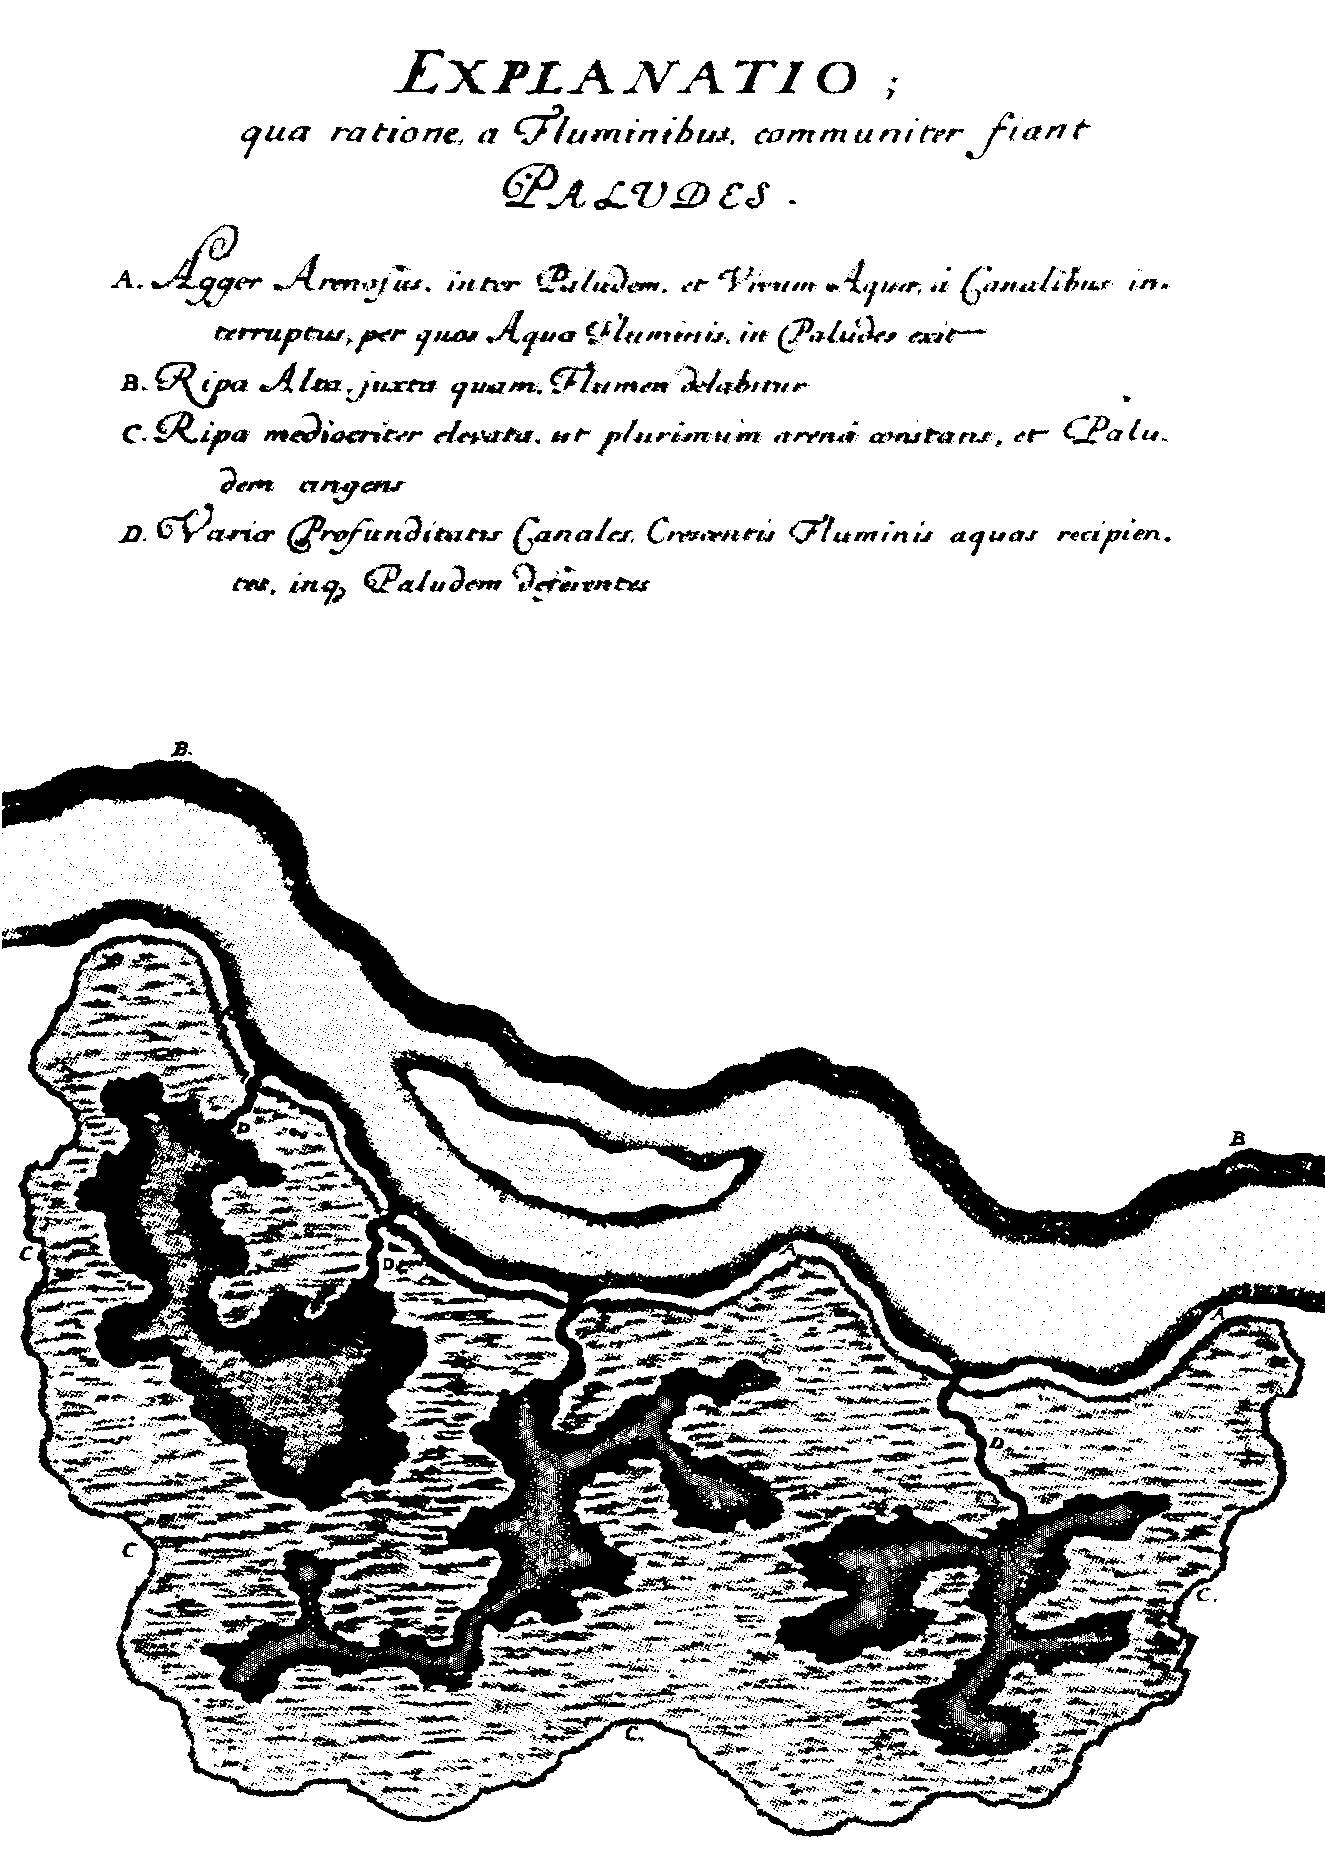 EXPLANATIO ;
qua ratione, a Fluminibus, communiter fiant
PALUDES .
A. Agger Arenosus, inter Paludem, et Vivum Aquæ, á Canalibus in-
terruptus, per quos Aqua Fluminis, in Paludes exit
B. Ripa Alta, juxta quam, Flumen delabitur
C. Ripa mediocriter elevata, ut plurimum arenâ constans, et Palu-
dem cingens
D. Variæ Profunditatis Canales, Crescentis Fluminis aquas recipien-
tes, inq, Paludem deferentes
B.
B
D
C
D
A
A
D.
C
C.
C.